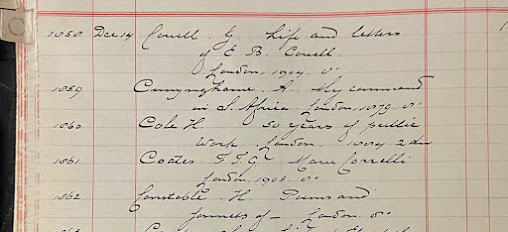 1858 Dec 14 Cowell. G. Life and letters
of E. B. Cowell.
London, 1904. 8°
1859 Cunynghame. A. My command
in S. Africa. London, 1879. 8°
1860 Cole H. 50 years of public
Work. London, 2
1861 Coates. T. F. G. Marie Corelli
London, 1903. 8°
1862 Constable. H. Poems and
sonnets of — London. 8°